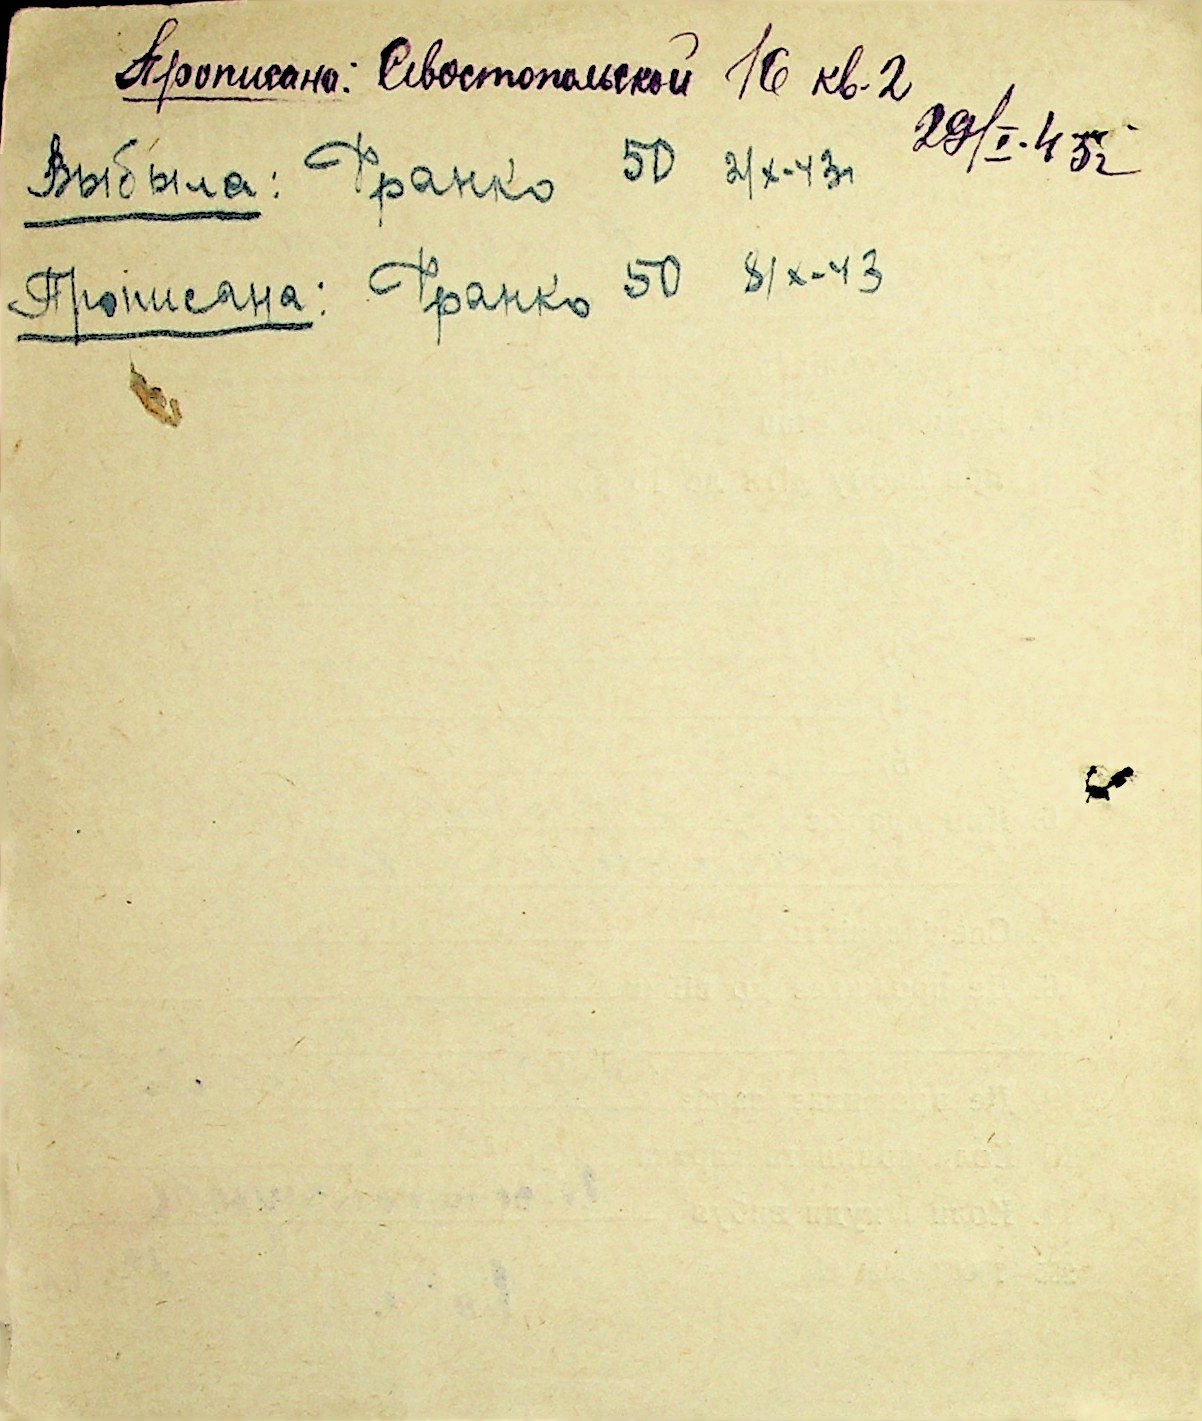 Прописана: Севостопольской 16 кв. 2
29/I-43г
Выбыла: Франко 50 2/X-43г
Прописана: Франко 50 8/X-43